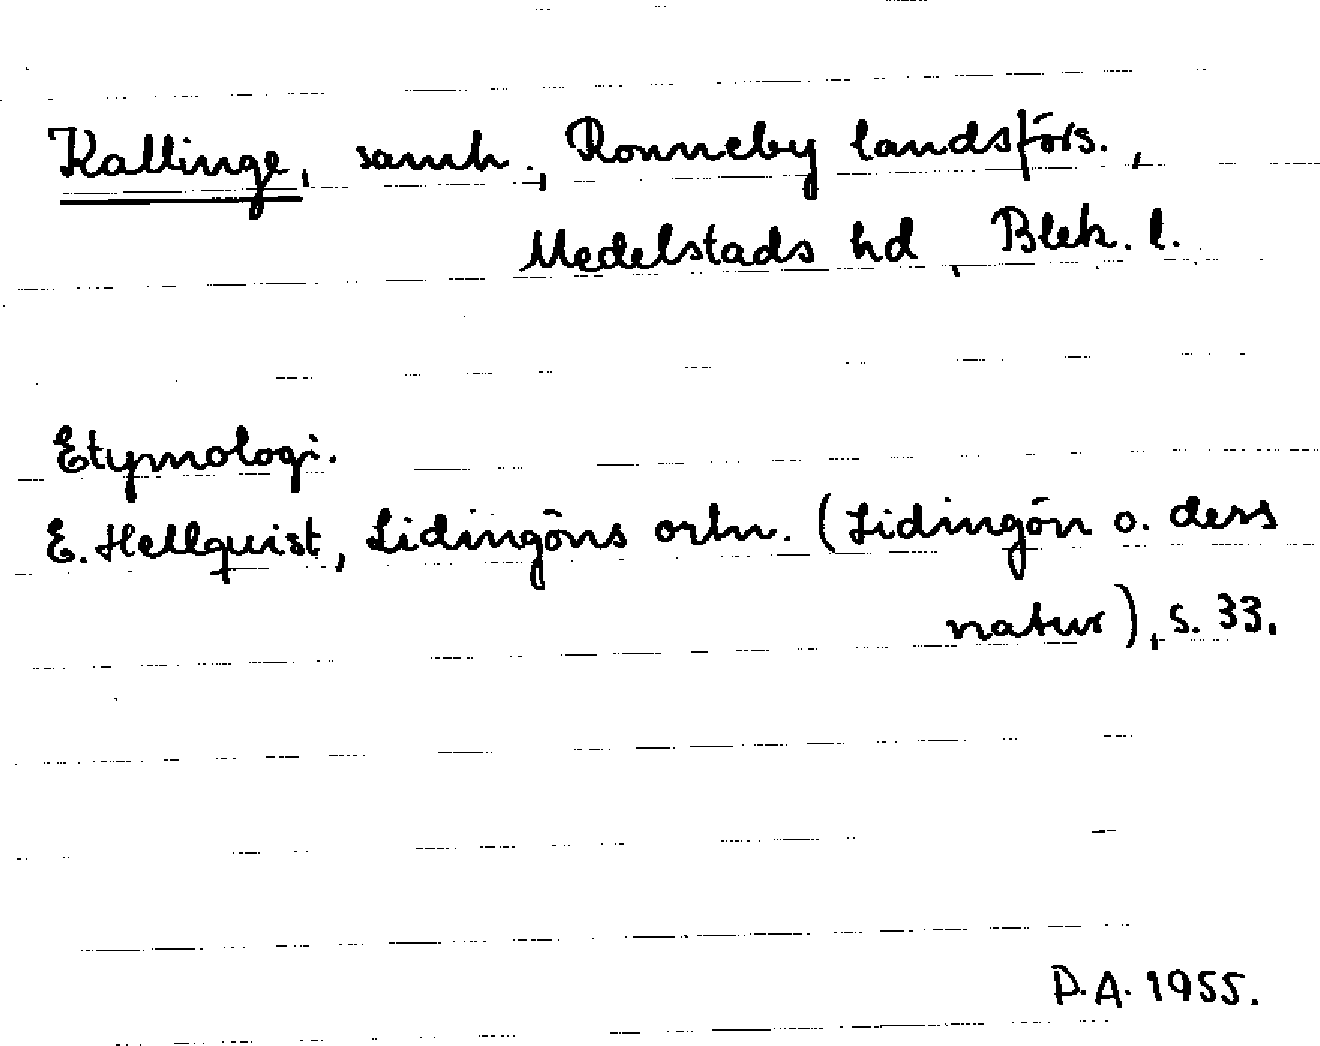 Kallinge, samh., Ronneby landsförs.,
Medelstads hd, Blek. l.
Etymologi.
E. Hellquist, Lidingöns ortn. (Lidingön o. dess
natur), s. 33.
P.A. 1955.